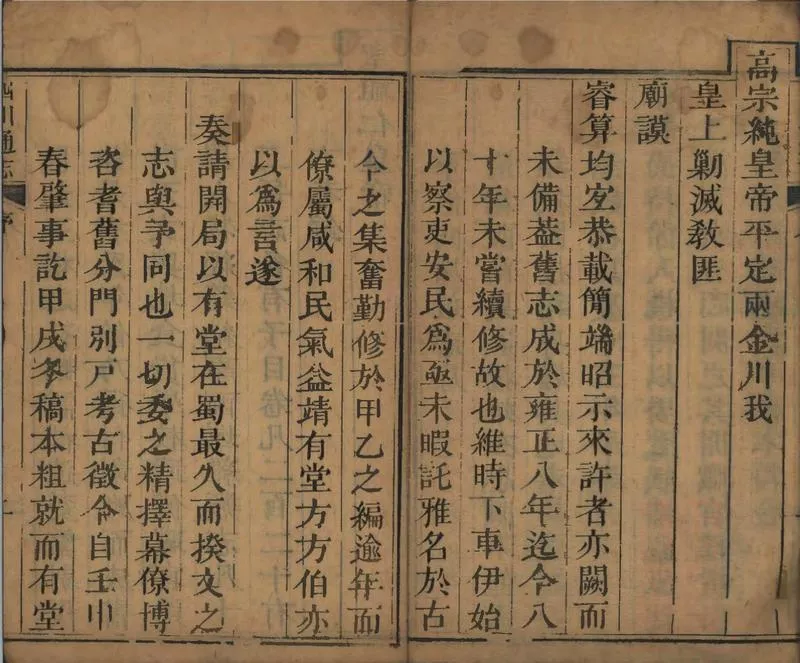 高宗純皇帝平定兩金川我
皇上勦滅敎匪
廟謨
睿算均宐恭載簡端昭示來許者亦闕而
未備葢舊志成於雍正八年迄今八
十年未嘗續修故也維時下車伊始
以察吏安民爲亟未暇託雅名於古
今之集奮勤修於甲乙之編逾年而
僚屬咸和民氣益靖有堂方方伯亦
以爲言遂
奏請開局以有堂在蜀最久而揆文之
志與予同也一切委之精擇幕僚博
咨耆舊分門別戸考古徵今自壬申
春肇事訖甲戌冬稿本粗就而有堂
四川通志
序